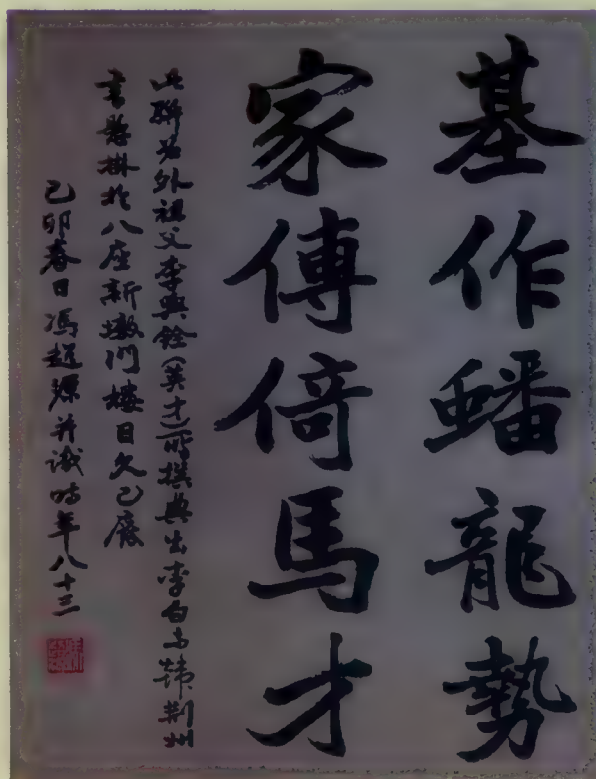 基作蟠龍勢
家傳倚馬才
此聯為外祖父李興銓(英才)所撰典出李白与韓荆州
書懸掛於八座新墩门楼日久已廢
己卯春日馮超 并識时年八十三